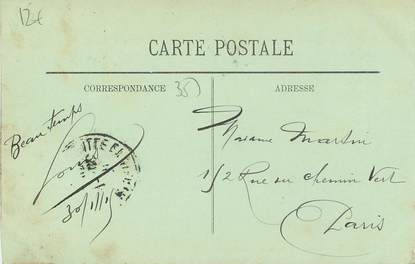 12€
CARTE POSTALE
CORRESPONDANCE
ADRESSE
Beau temps
Louis
Madame Martin
1/2 Rue du chemin Vert
Paris